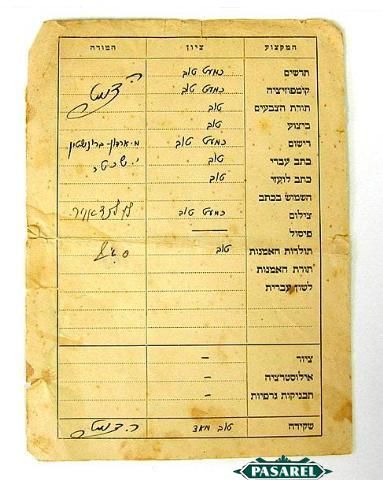 המקצוע ציון המורה
תדשים כמעט טוב
קומפוזיציה כמעט טוב
תורת הצבעים טוב
ביצוע טוב
רישום כמעט טוב
כתב עברי טוב
כתב לועזי טוב
השמוש בכתב
צילום כמעט טוב
פיסול —
תולדות האמנות טוב
תורת האמנות
לשון עברית
ציור –
אילוסטרציה –
תכניקות גרפיות –
שקידה טוב מאד
PASAREL